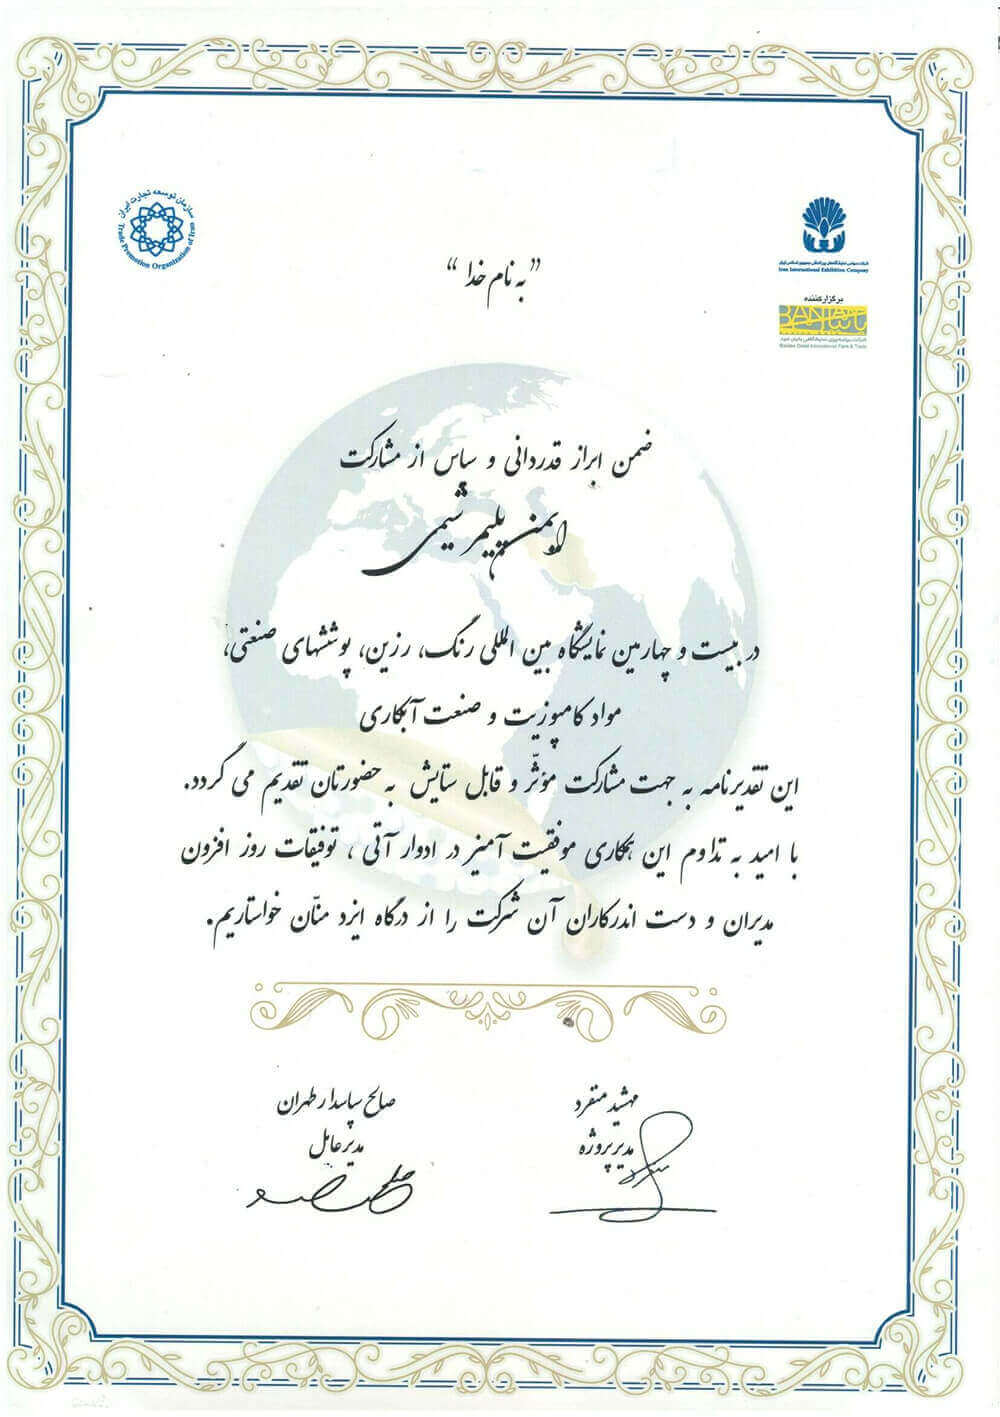 سازمان توسعه تجارت ایران
Trade Promotion Organization of Iran
شرکت سهامی نمایشگاههای بین المللی جمهوری اسلامی ایران
Iran International Exhibition Company
برگزارکننده
شرکت برنامه ریزی نمایشگاهی بانیان امید
Banian Omid International Fairs & Trade
" به نام خدا "
ضمن ابراز قدردانی و سپاس از مشارکت
ایمن پلیمر شیمی
در بیست و چهارمین نمایشگاه بین المللی رنگ، رزین، پوششهای صنعتی،
مواد کامپوزیت و صنعت آبکاری
این تقدیرنامه به جهت مشارکت مؤثّر و قابل ستایش به حضورتان تقدیم می گردد.
با امید به تداوم این همکاری موفقیت آمیز در ادوار آتی ، توفیقات روز افزون
مدیران و دست اندرکاران آن شرکت را از درگاه ایزد منّان خواستاریم.
مهشید منفرد
مدیر پروژه
صالح پاسدار طهران
مدیرعامل